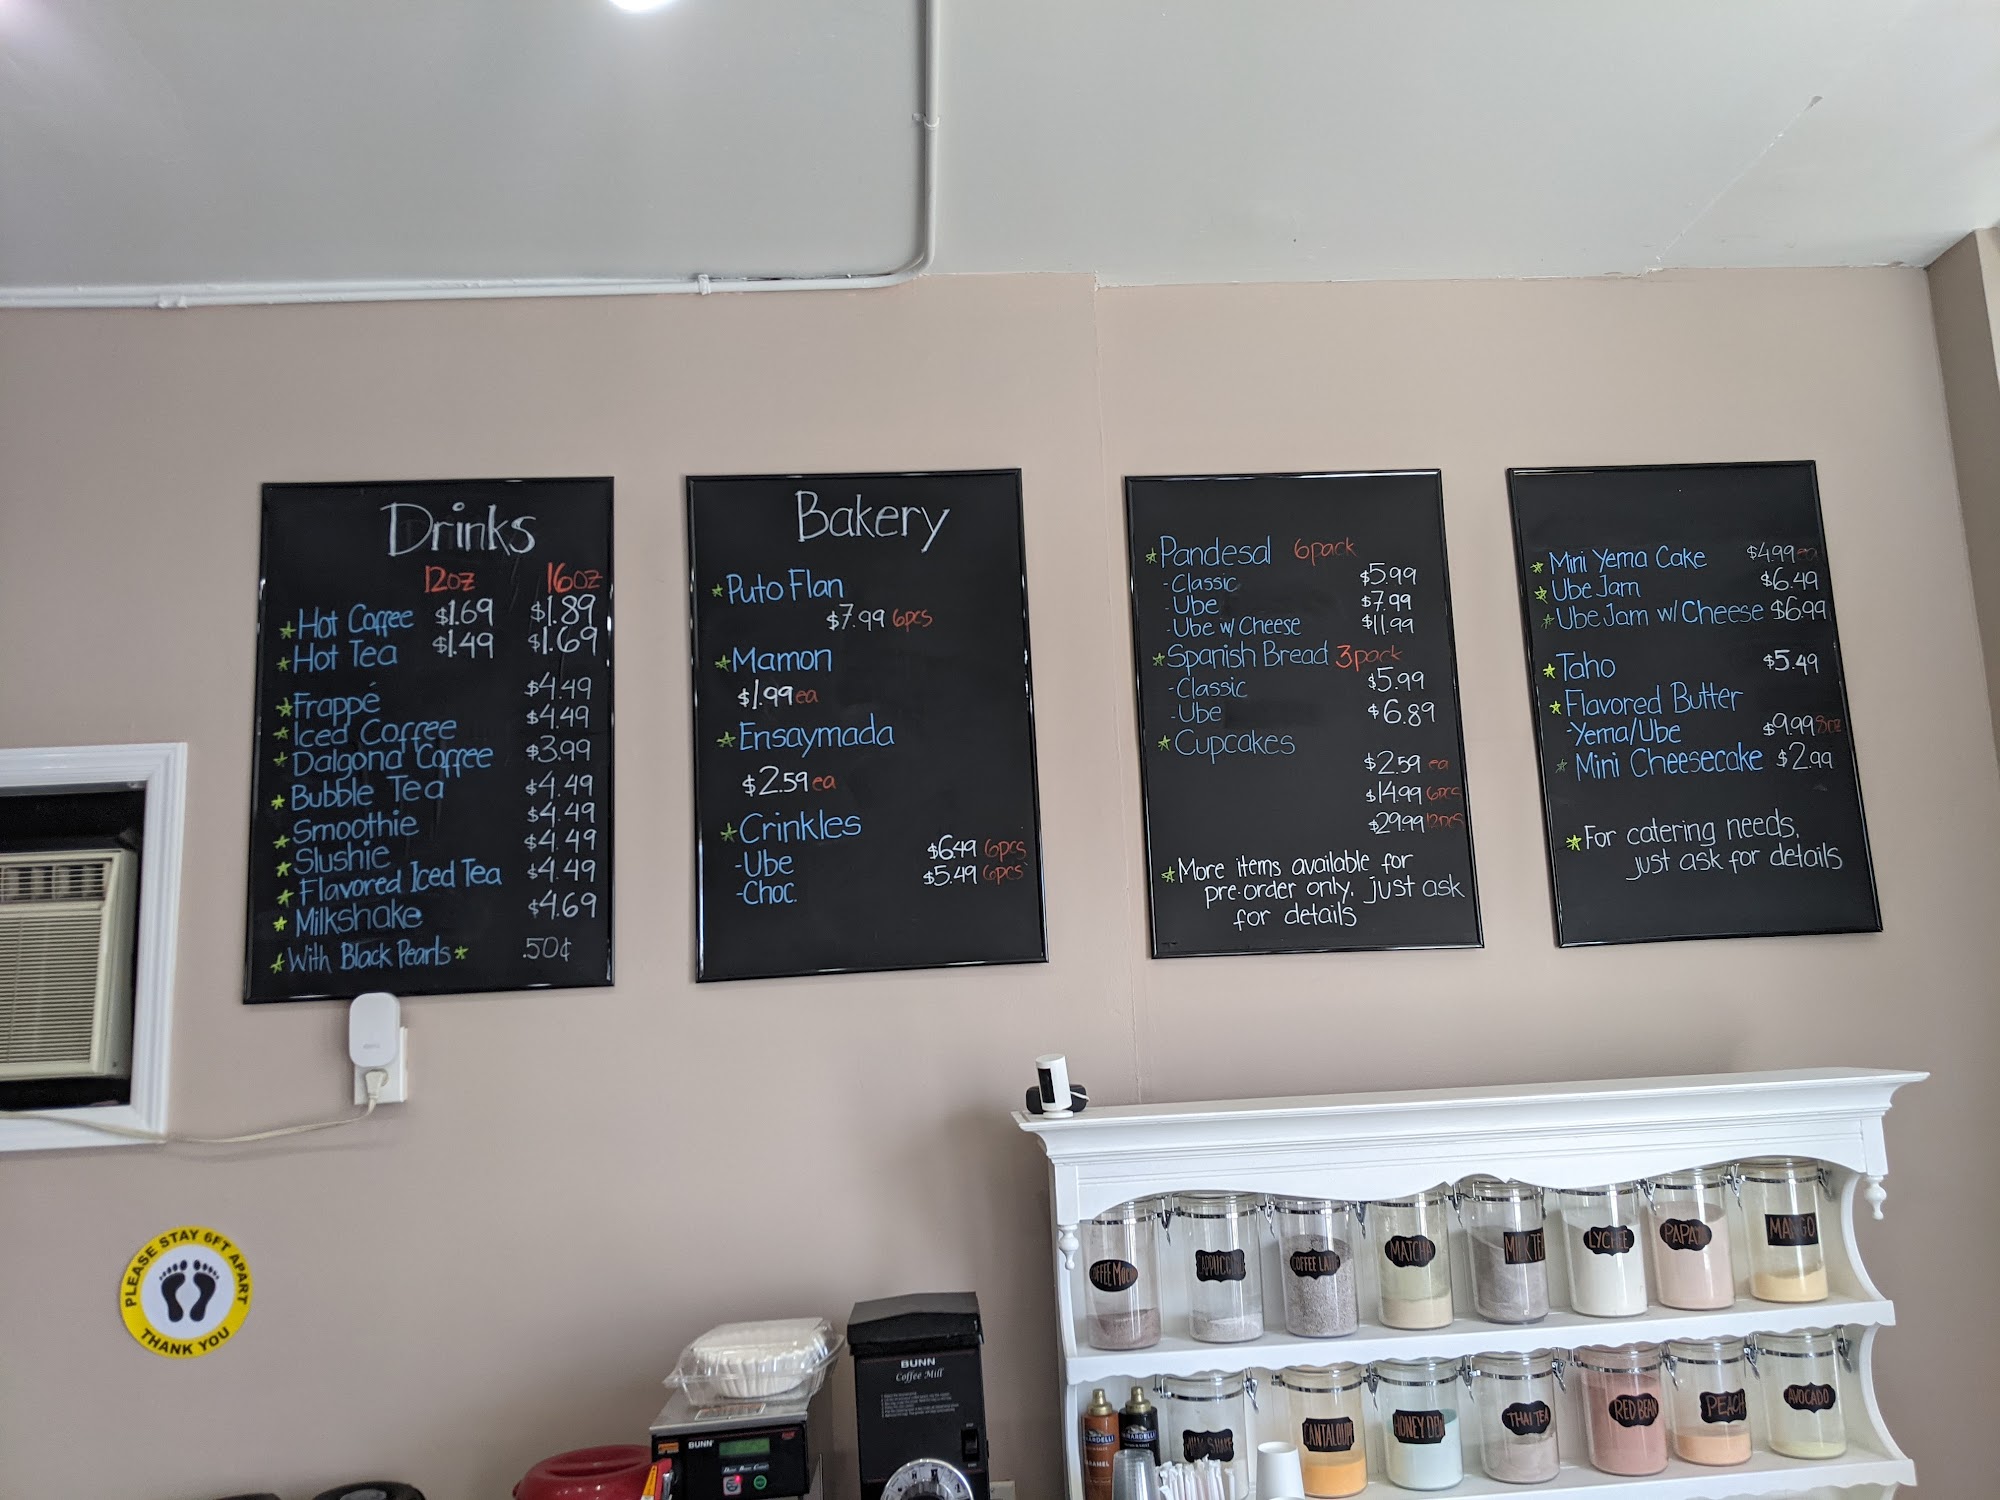 Drinks
12oz 16oz
Hot Coffee $1.69 $1.89
Hot Tea $1.49 $1.69
Frappé $4.49
Iced Coffee $4.49
Dalgona Coffee $3.99
Bubble Tea $4.49
Smoothie $4.49
Slushie $4.49
Flavored Iced Tea $4.49
Milkshake $4.69
With Black Pearls .50¢
Bakery
Puto Flan
$7.99 6pcs
Mamon
$1.99 ea
Ensaymada
$2.59 ea
Crinkles
-Ube $6.49 6pcs
-Choc. $5.49 6pcs
Pandesal 6pack
-Classic $5.99
-Ube $7.99
-Ube w/ Cheese $11.99
Spanish Bread 3pack
-Classic $5.99
-Ube $6.89
Cupcakes
$2.59 ea
$14.99 6pcs
$29.99 12pcs
More items available for
pre-order only, just ask
for details
Mini Yema Cake $4.99 ea
Ube Jam $6.49
Ube Jam w/ Cheese $6.99
Taho $5.49
Flavored Butter
-Yema/Ube $9.99 8oz
Mini Cheesecake $2.99
For catering needs,
just ask for details
PLEASE STAY 6FT APART
THANK YOU
BUNN
Coffee Mill
BUNN
MATCHA
LYCHEE
PAPAYA
MANGO
HONEY DEW
THAI TEA
RED BEAN
PEACH
AVOCADO